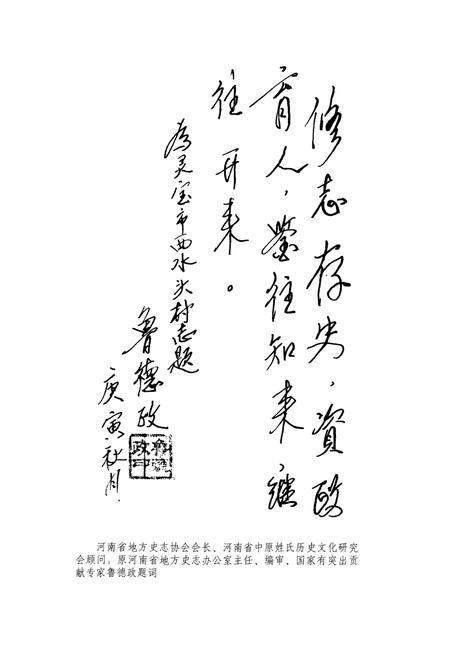 修志存史，资政
育人，鉴往知来，继
往开来。
为灵宝市西水头村志题
鲁德政
庚寅秋月
河南省地方史志协会会长、河南省中原姓氏历史文化研究
会顾问；原河南省地方史志办公室主任、编审、国家有突出贡
献专家鲁德政题词